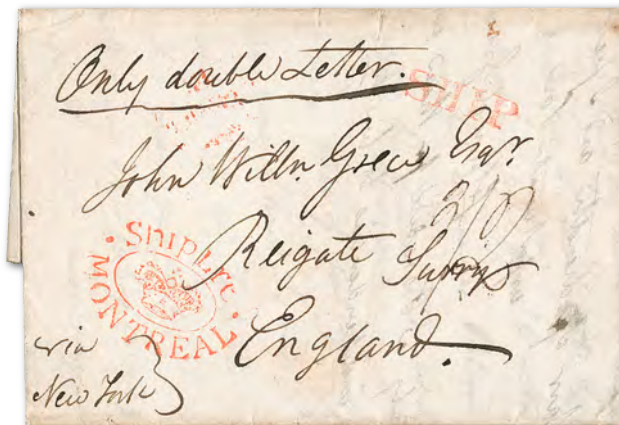 Only double Letter.
SHIP
John Willm. Grece Esqr
Reigate Surry
SHIP Lre
MONTREAL
England.
via
New York